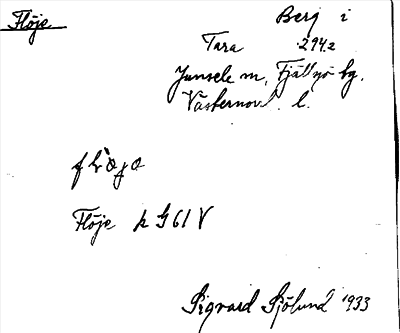 Flöje
Berg i
Tara 294 2
Junsele sn, Fjällsjö tg.
Västernorrl. l.
Flöje k G61 V
Sigvard Sjölund 1933